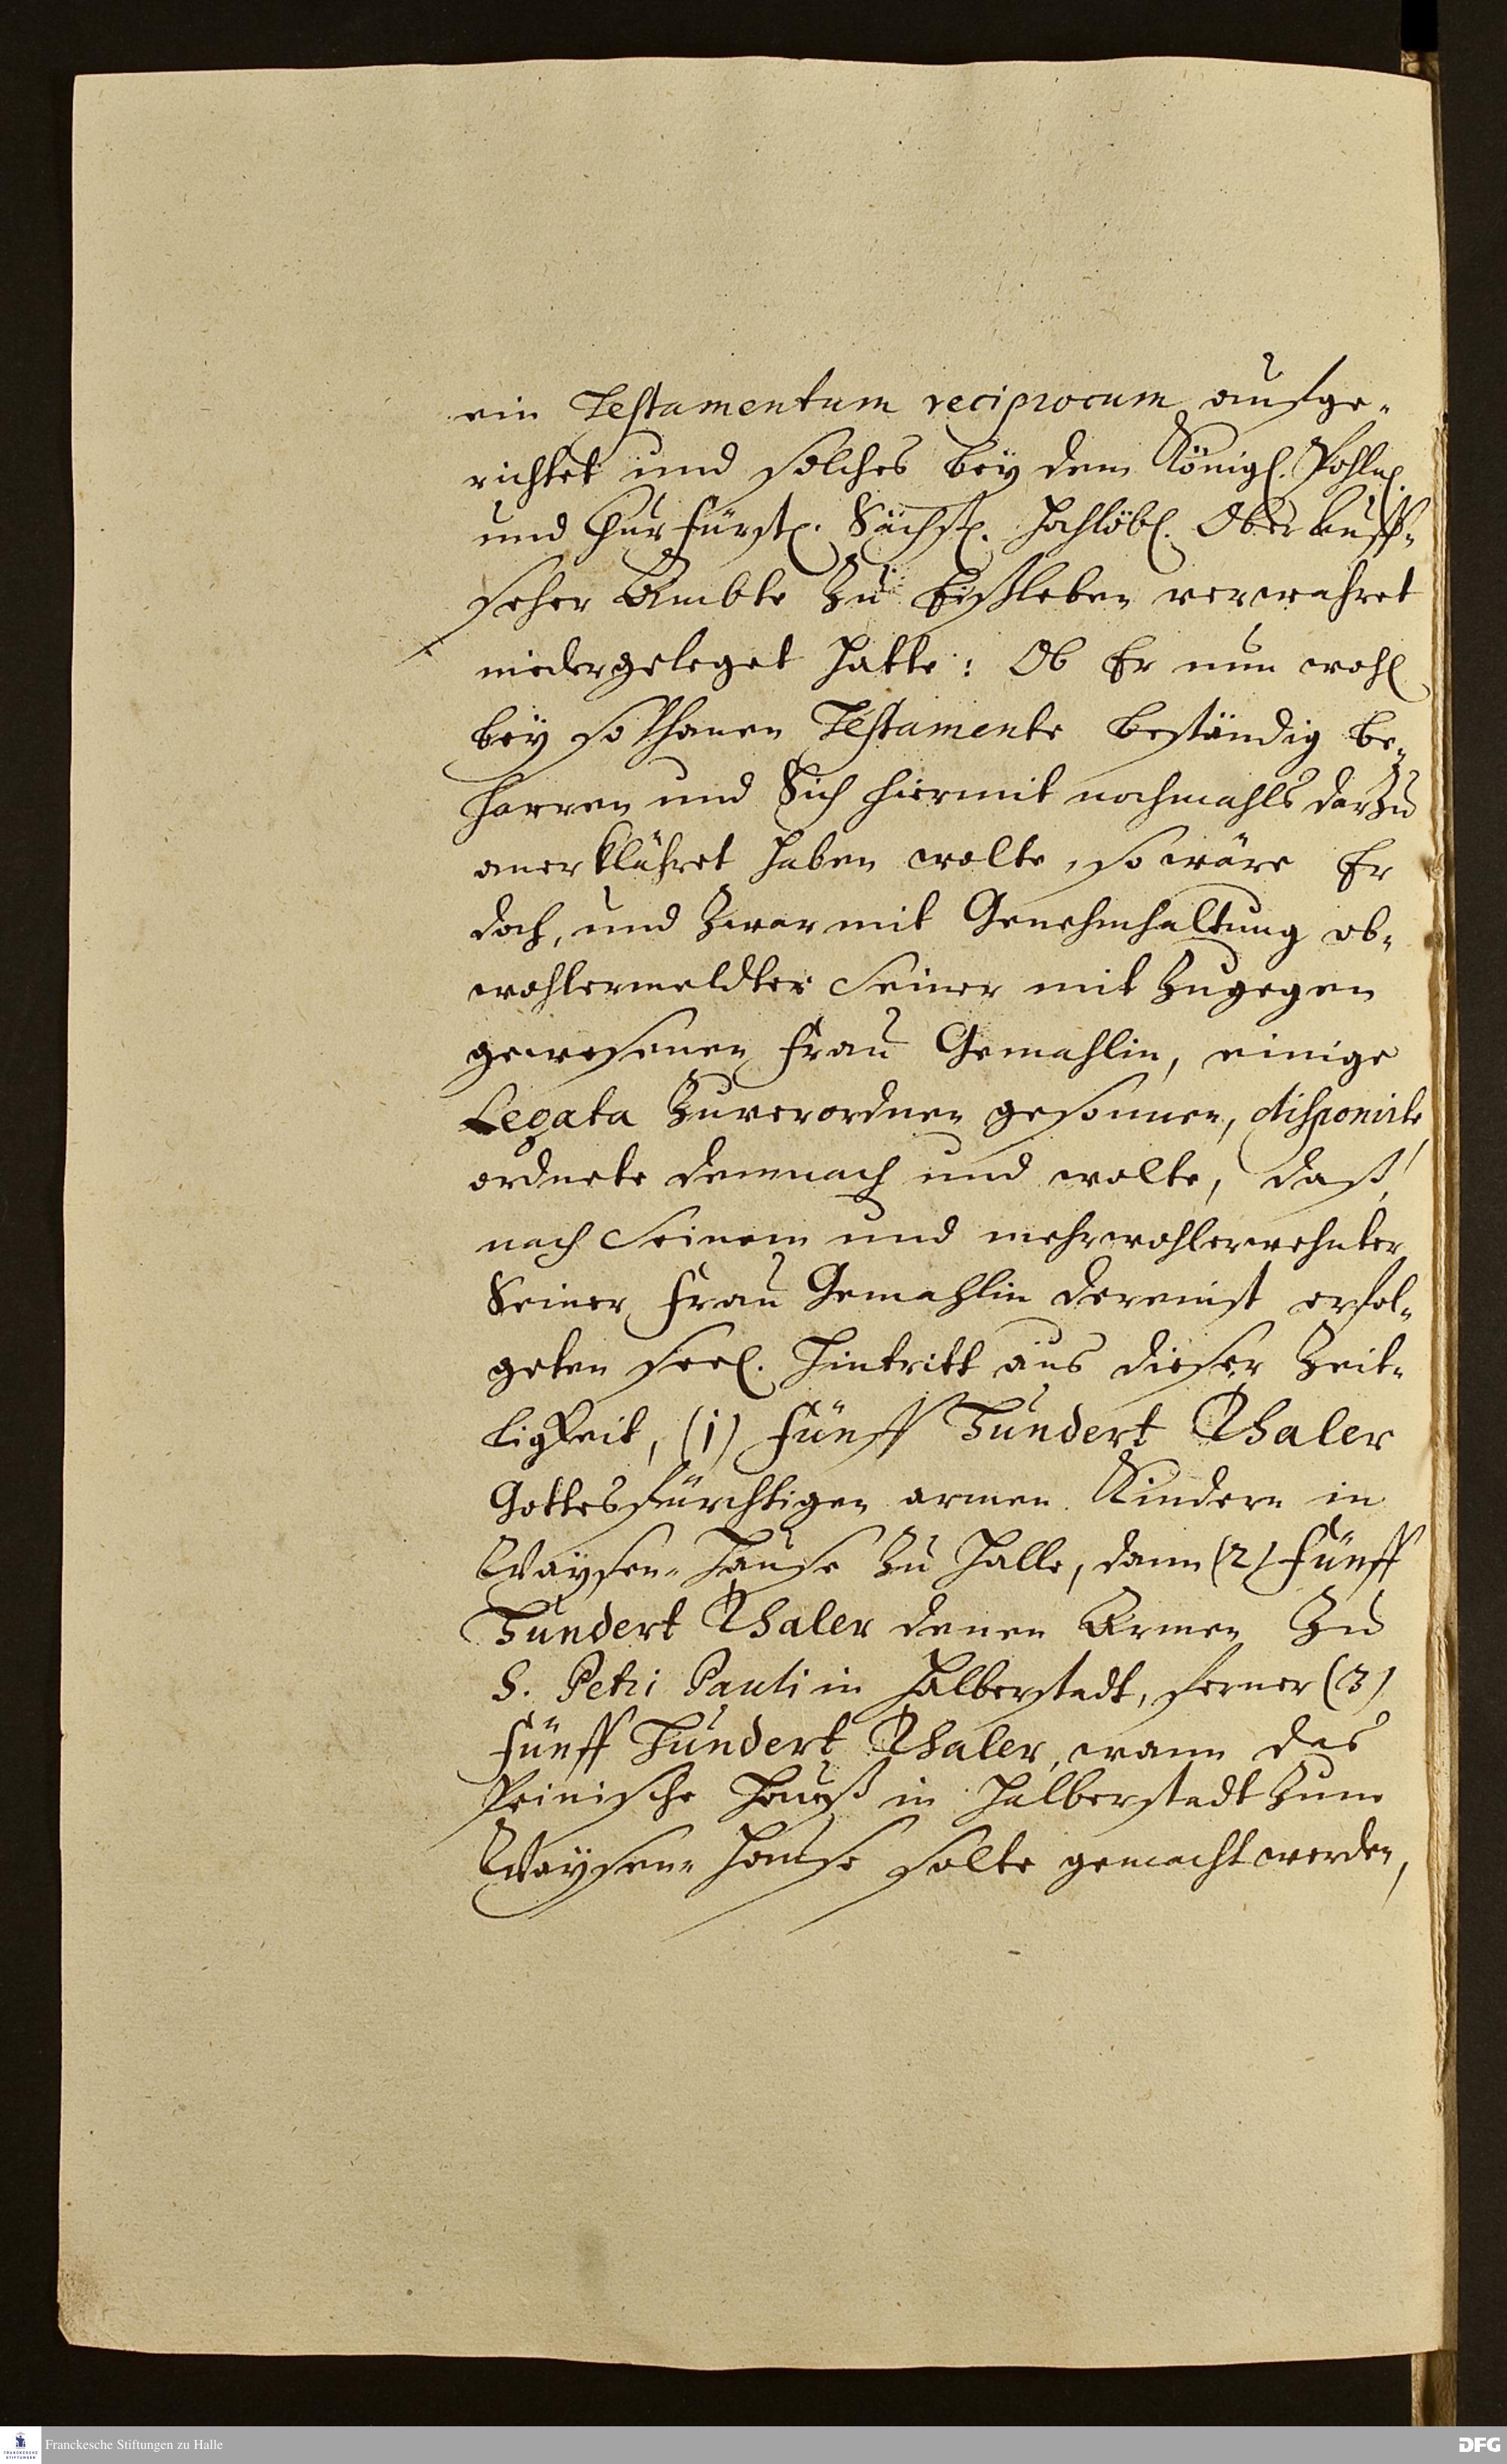 ein Testamentum reciprocum aufge-
richtet und solches bey dem Königl. Pohln.
und Churfürstl. Sächs. Hochlöbl. Ober Auff-
seher Ambte zu Eißleben verwahret
niedergeleget hatte: Ob Er nun wohl
bey so thanen Testamente beständig be-
harren und Sich hiermit nochmahls darzu
anerklähret haben wolte, so wäre Er
doch, und zwar mit Genehmhaltung ob-
wohlermeldter Seiner mit zugegen
gewesenen Frau Gemahlin, einige
Legata zuverordnen gesonnen, disponirte
ordnete demnach und wolte, daß,
nach Seinem und mehrwohlerwehnter
Seiner Frau Gemahlin dereinst erfol-
geten seel. Hintritt aus dieser Zeit-
ligkeit, (1) Fünff Hundert Thaler
Gottesfürchtigen armen Kindern in
Waysen-Hause zu Halle, dann (2) Fünff
Hundert Thaler denen Armen zu
S. Petri Pauli in Halberstadt, ferner (3)
Fünff Hundert Thaler, wann das
Peinische Hauß in Halberstadt zum
Waysen-Hause solte gemacht werden,
Franckesche Stiftungen zu Halle
DFG